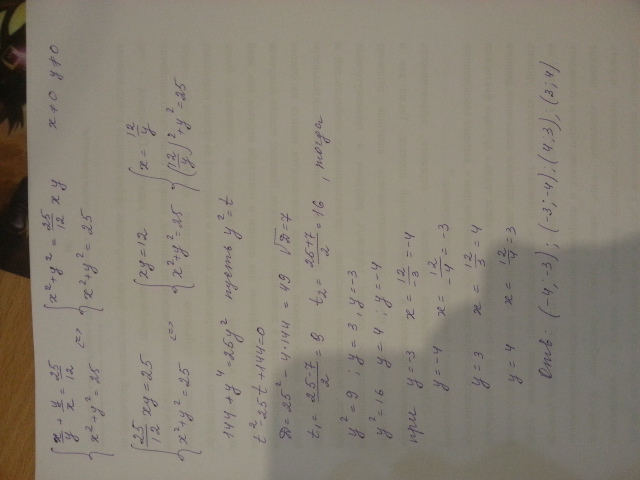 { x/y + y/x = 25/12 ; x² + y² = 25 <=> { x² + y² = 25/12 xy ; x² + y² = 25 x≠0 y≠0
{ 25/12 xy = 25 ; x² + y² = 25 <=> { xy = 12 ; x² + y² = 25 { x = 12/y ; (12/y)² + y² = 25
144 + y⁴ = 25y² пусть y² = t
t² - 25t + 144 = 0
D = 25² - 4·144 = 49 √D = 7
t₁ = (25-7)/2 = 9 t₂ = (25+7)/2 = 16 , тогда
y² = 9 ; y = 3 , y = -3
y² = 16 y = 4 ; y = -4
при y = -3 x = 12/-3 = -4
y = -4 x = 12/-4 = -3
y = 3 x = 12/3 = 4
y = 4 x = 12/4 = 3
Отв: (-4, -3) ; (-3; -4), (4, 3), (3; 4)